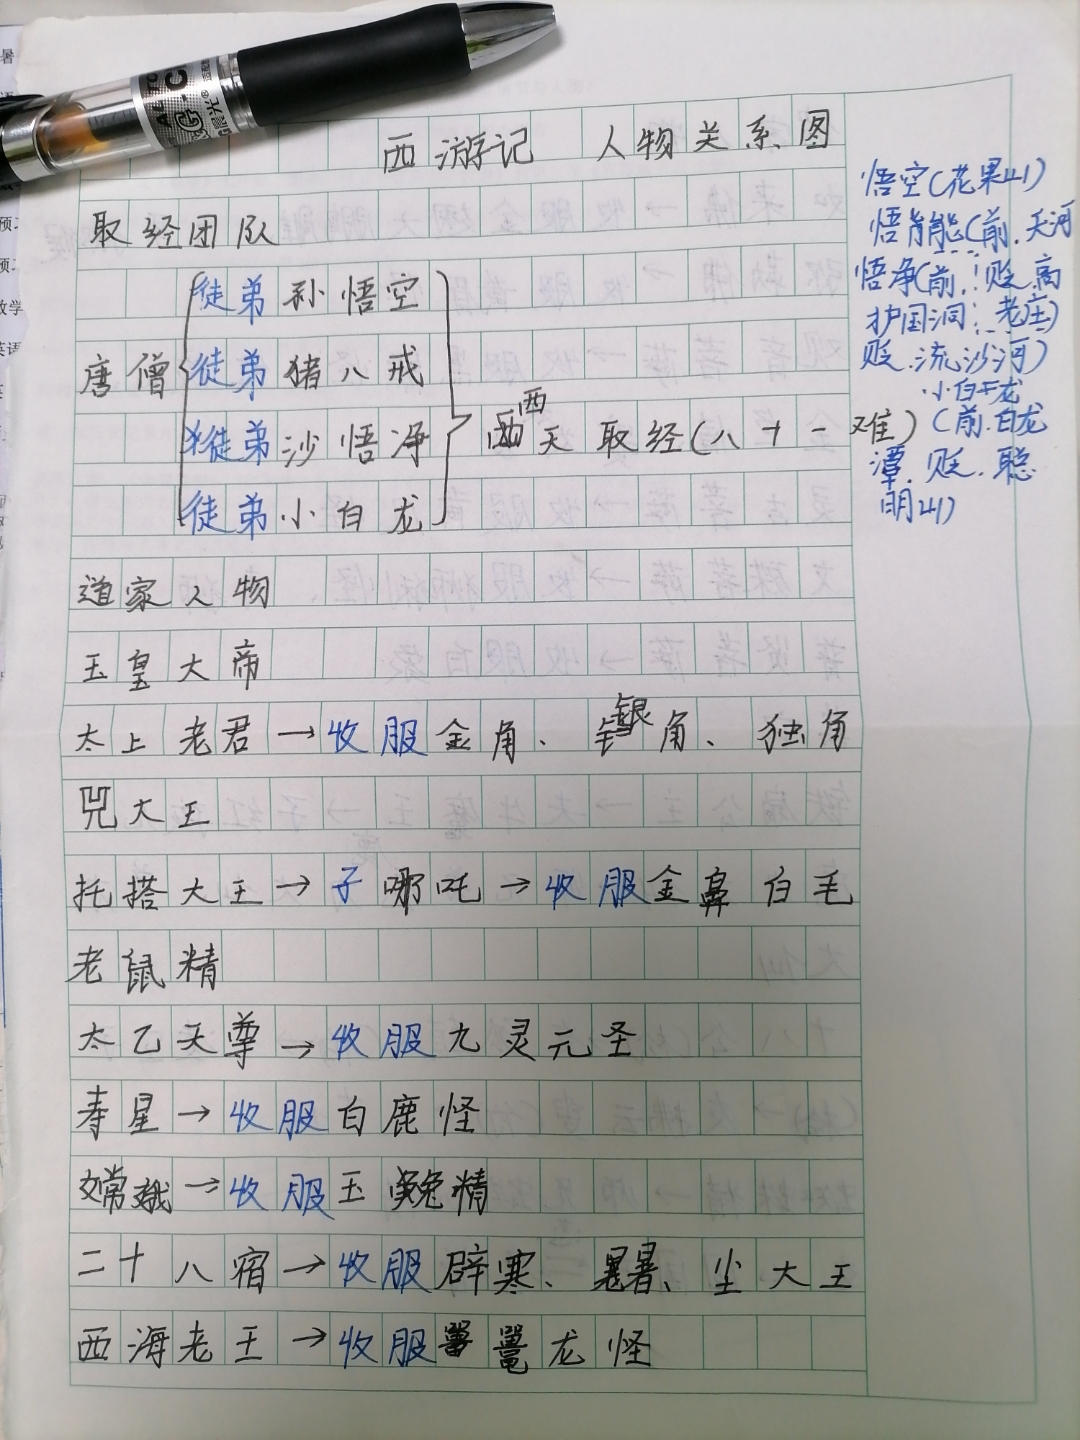 西游记 人物关系图
取经团队
徒弟孙悟空
唐僧 徒弟猪八戒
徒弟沙悟净
西天取经(八十一难)
徒弟小白龙
道家人物
玉皇大帝
太上老君→收服金角、银角、独角
兕大王
托搭大王→子哪吒→收服金鼻白毛
老鼠精
太乙天尊→收服九灵元圣
寿星→收服白鹿怪
嫦娥→收服玉兔精
二十八宿→收服辟寒、暑、尘大王
西海老王→收服鼍龙怪
悟空(花果山)
悟能(前.天河
悟净(前.贬.高
护国洞 老庄)
贬.流沙河)
小白龙
(前.白龙
潭.贬.聪
明山)